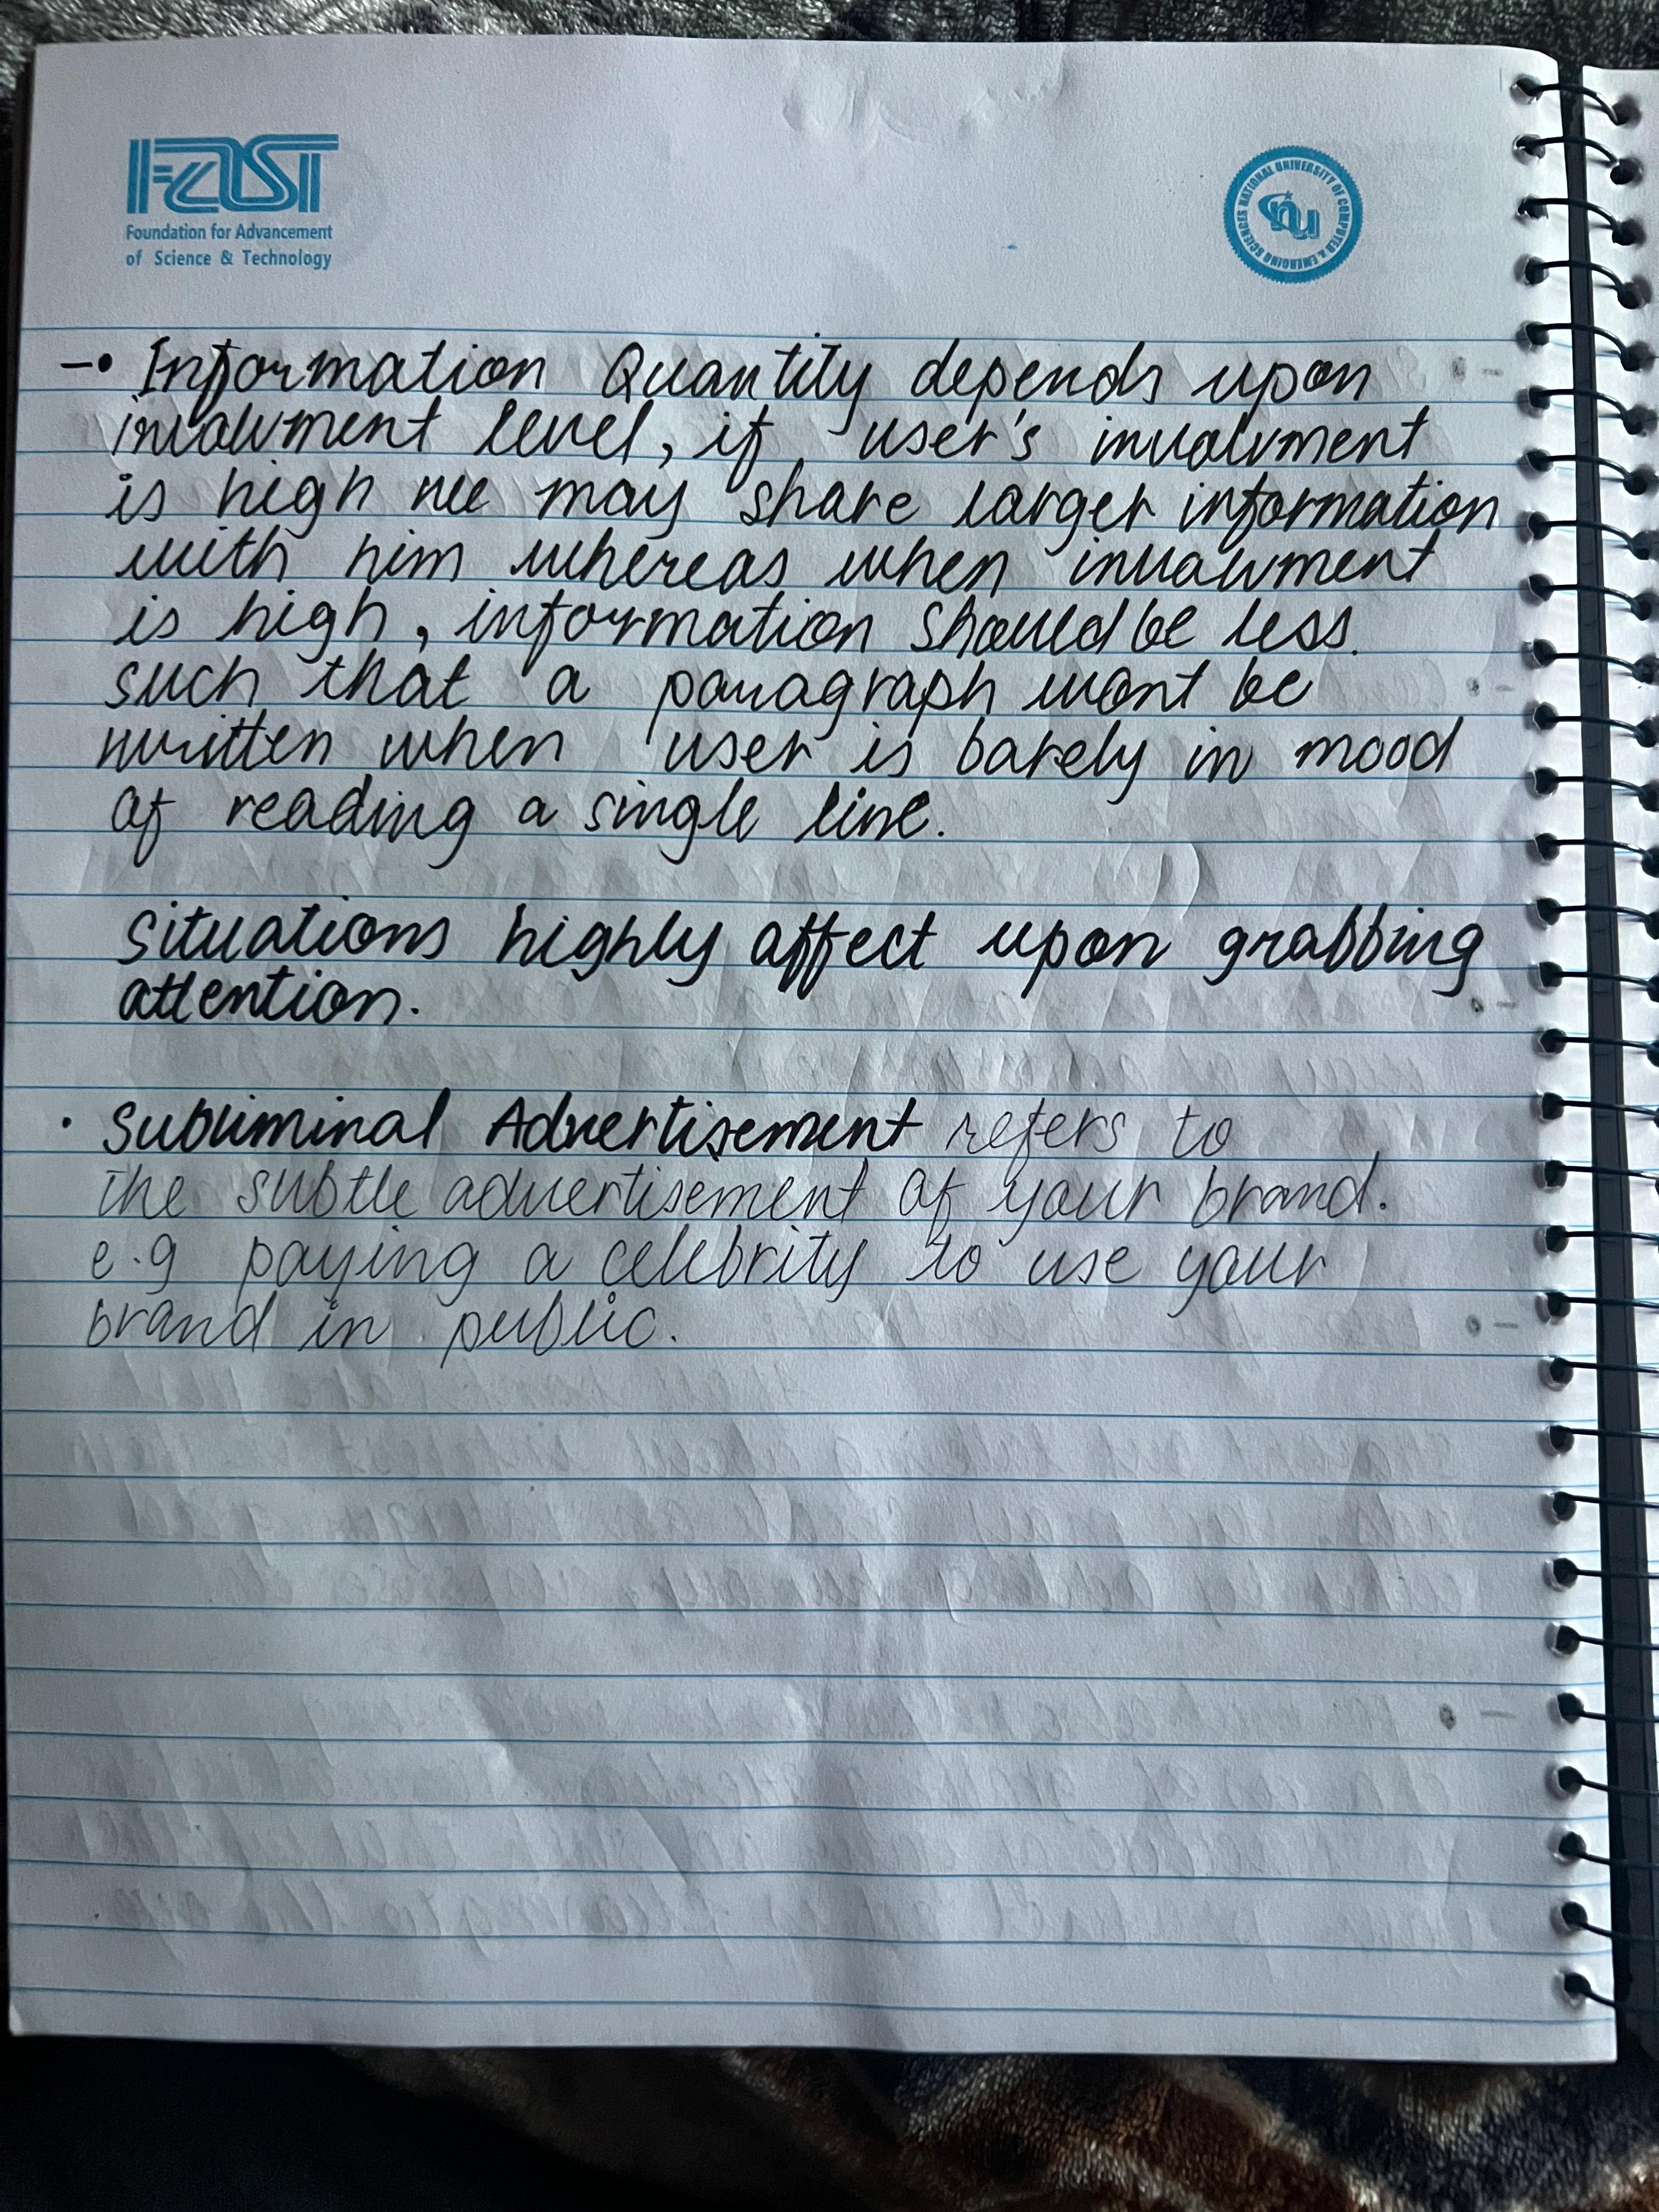 FAST
Foundation for Advancement
of Science & Technology
NATIONAL UNIVERSITY OF COMPUTER & EMERGING SCIENCES
nu
–• Information Quantity depends upon
involvment level, if user's involvment
is high we may share larger information
with him whereas when involvment
is high, information should be less.
such that a paragraph wont be
written when user is barely in mood
of reading a single line.
Situations highly affect upon grabbing
attention.
· Subliminal Advertisement refers to
the subtle advertisement of your brand.
e.g paying a celebrity to use your
brand in public.